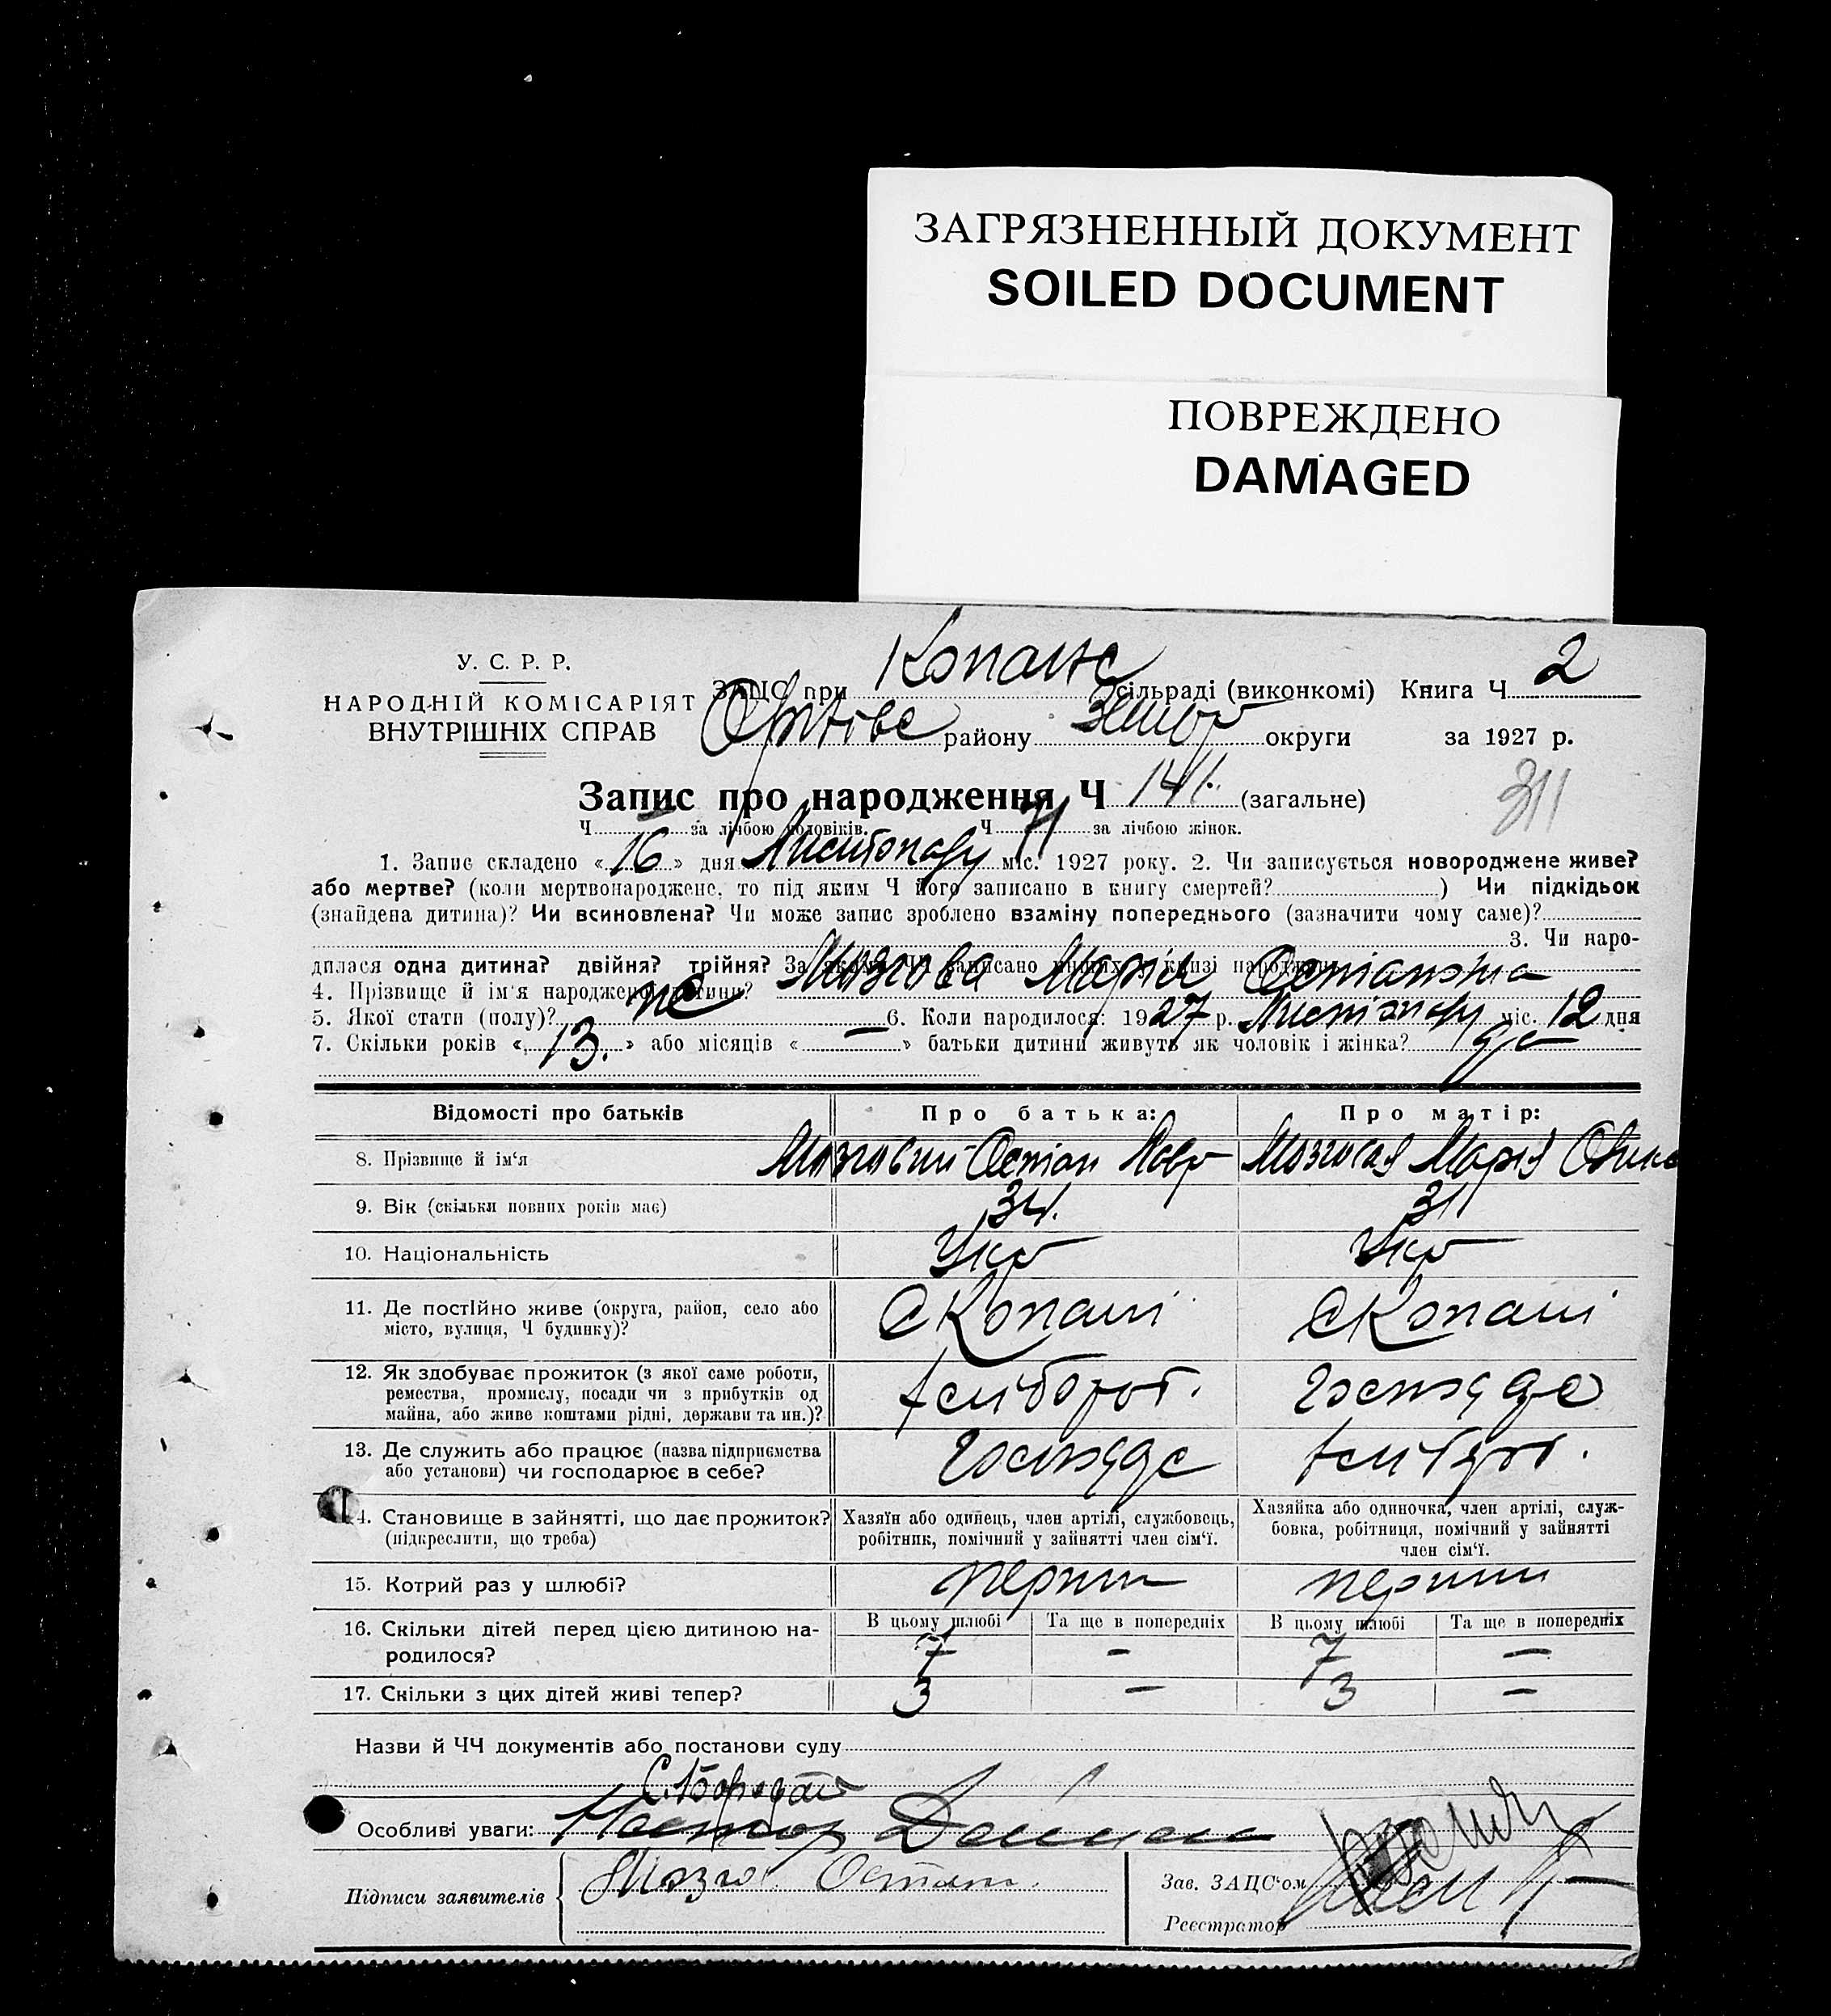 ЗАГРЯЗНЕННЫЙ ДОКУМЕНТ
SOILED DOCUMENT
ПОВРЕЖДЕНО
DAMAGED
У. С. Р. Р.
НАРОДНІЙ КОМІСАРІЯТ
ВНУТРІШНІХ СПРАВ
ЗАЦС при Копанс сільраді (виконкомі) Книга Ч 2
району округи за 1927 р.
Запис про народження Ч 141. (загальне)
311
Ч — за лічбою чоловіків. Ч 71 за лічбою жінок.
1. Запис складено «16» дня Листопаду міс. 1927 року. 2. Чи записується новороджене живе?
або мертве? (коли мертвонароджене, то під яким Ч його записано в книгу смертей? ) Чи підкідьок
(знайдена дитина)? Чи всиновлена? Чи може запис зроблено взаміну попереднього (зазначити чому саме)?
3. Чи наро-
дилася одна дитина? двійня? трійня? За якими ЧЧ записано инших у книзі народжень
4. Прізвище й ім'я народженої дитини? Мозгова Марія Остапівна
5. Якої стати (полу)? жс 6. Коли народилося: 1927 р. Листопаду міс. 12 дня
7. Скільки років «13.» або місяців «—» батьки дитини живуть як чоловік і жінка? да
Відомості про батьків Про батька: Про матір:
8. Прізвище й ім‘я Мозговий Остап Мозговая Марія
9. Вік (скільки повних років має) 34. 31
10. Національність Укр Укр
11. Де постійно живе (округа, район, село або
місто, вулиця, Ч будинку)? С Копані С Копані
12. Як здобуває прожиток (з якої саме роботи,
ремества, промислу, посади чи з прибутків од
майна, або живе коштами рідні, держави та ин.)?
13. Де служить або працює (назва підприємства
або установи) чи господарює в себе?
14. Становище в зайнятті, що дає прожиток?
(підкреслити, що треба)
Хазяїн або одинець, член артілі, службовець,
робітник, помічний у зайнятті член сім‘ї.
Хазяйка або одиночка, член артілі, служ-
бовка, робітниця, помічний у зайнятті
член сім‘ї.
15. Котрий раз у шлюбі? перши перши
16. Скільки дітей перед цією дитиною на-
родилося?
В цьому шлюбі Та ще в попередніх В цьому шлюбі Та ще в попередніх
7 — 7 —
17. Скільки з цих дітей живі тепер? 3 — 3 —
Назви й ЧЧ документів або постанови суду
С. Бородай
Особливі уваги:
Підписи заявителів Мозго Остап
Зав. ЗАЦС‘ом
Реєстратор